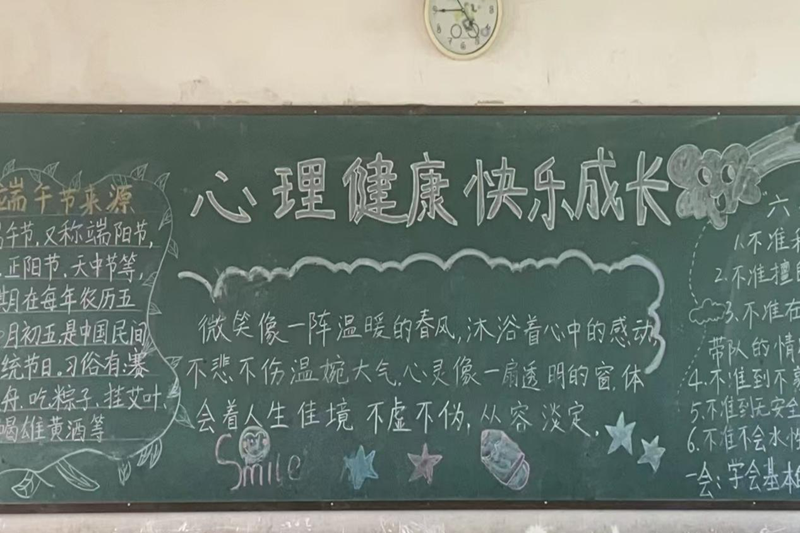 端午节来源
午节,又称端阳节,
正阳节、天中节等,
期在每年农历五
月初五是中国民间
统节日。习俗有:赛
舟、吃粽子、挂艾叶、
喝雄黄酒等
心理健康快乐成长
微笑像一阵温暖的春风,沐浴着心中的感动,
不悲不伤温婉大气.心灵像一扇透明的窗,体
会着人生佳境 不虚不伪,从容淡定.
Smile
六
1.不准
2.不准擅
3.不准在
带队的情
4.不准到不
5.不准到无安全
6.不准不会水性
一会:学会基本